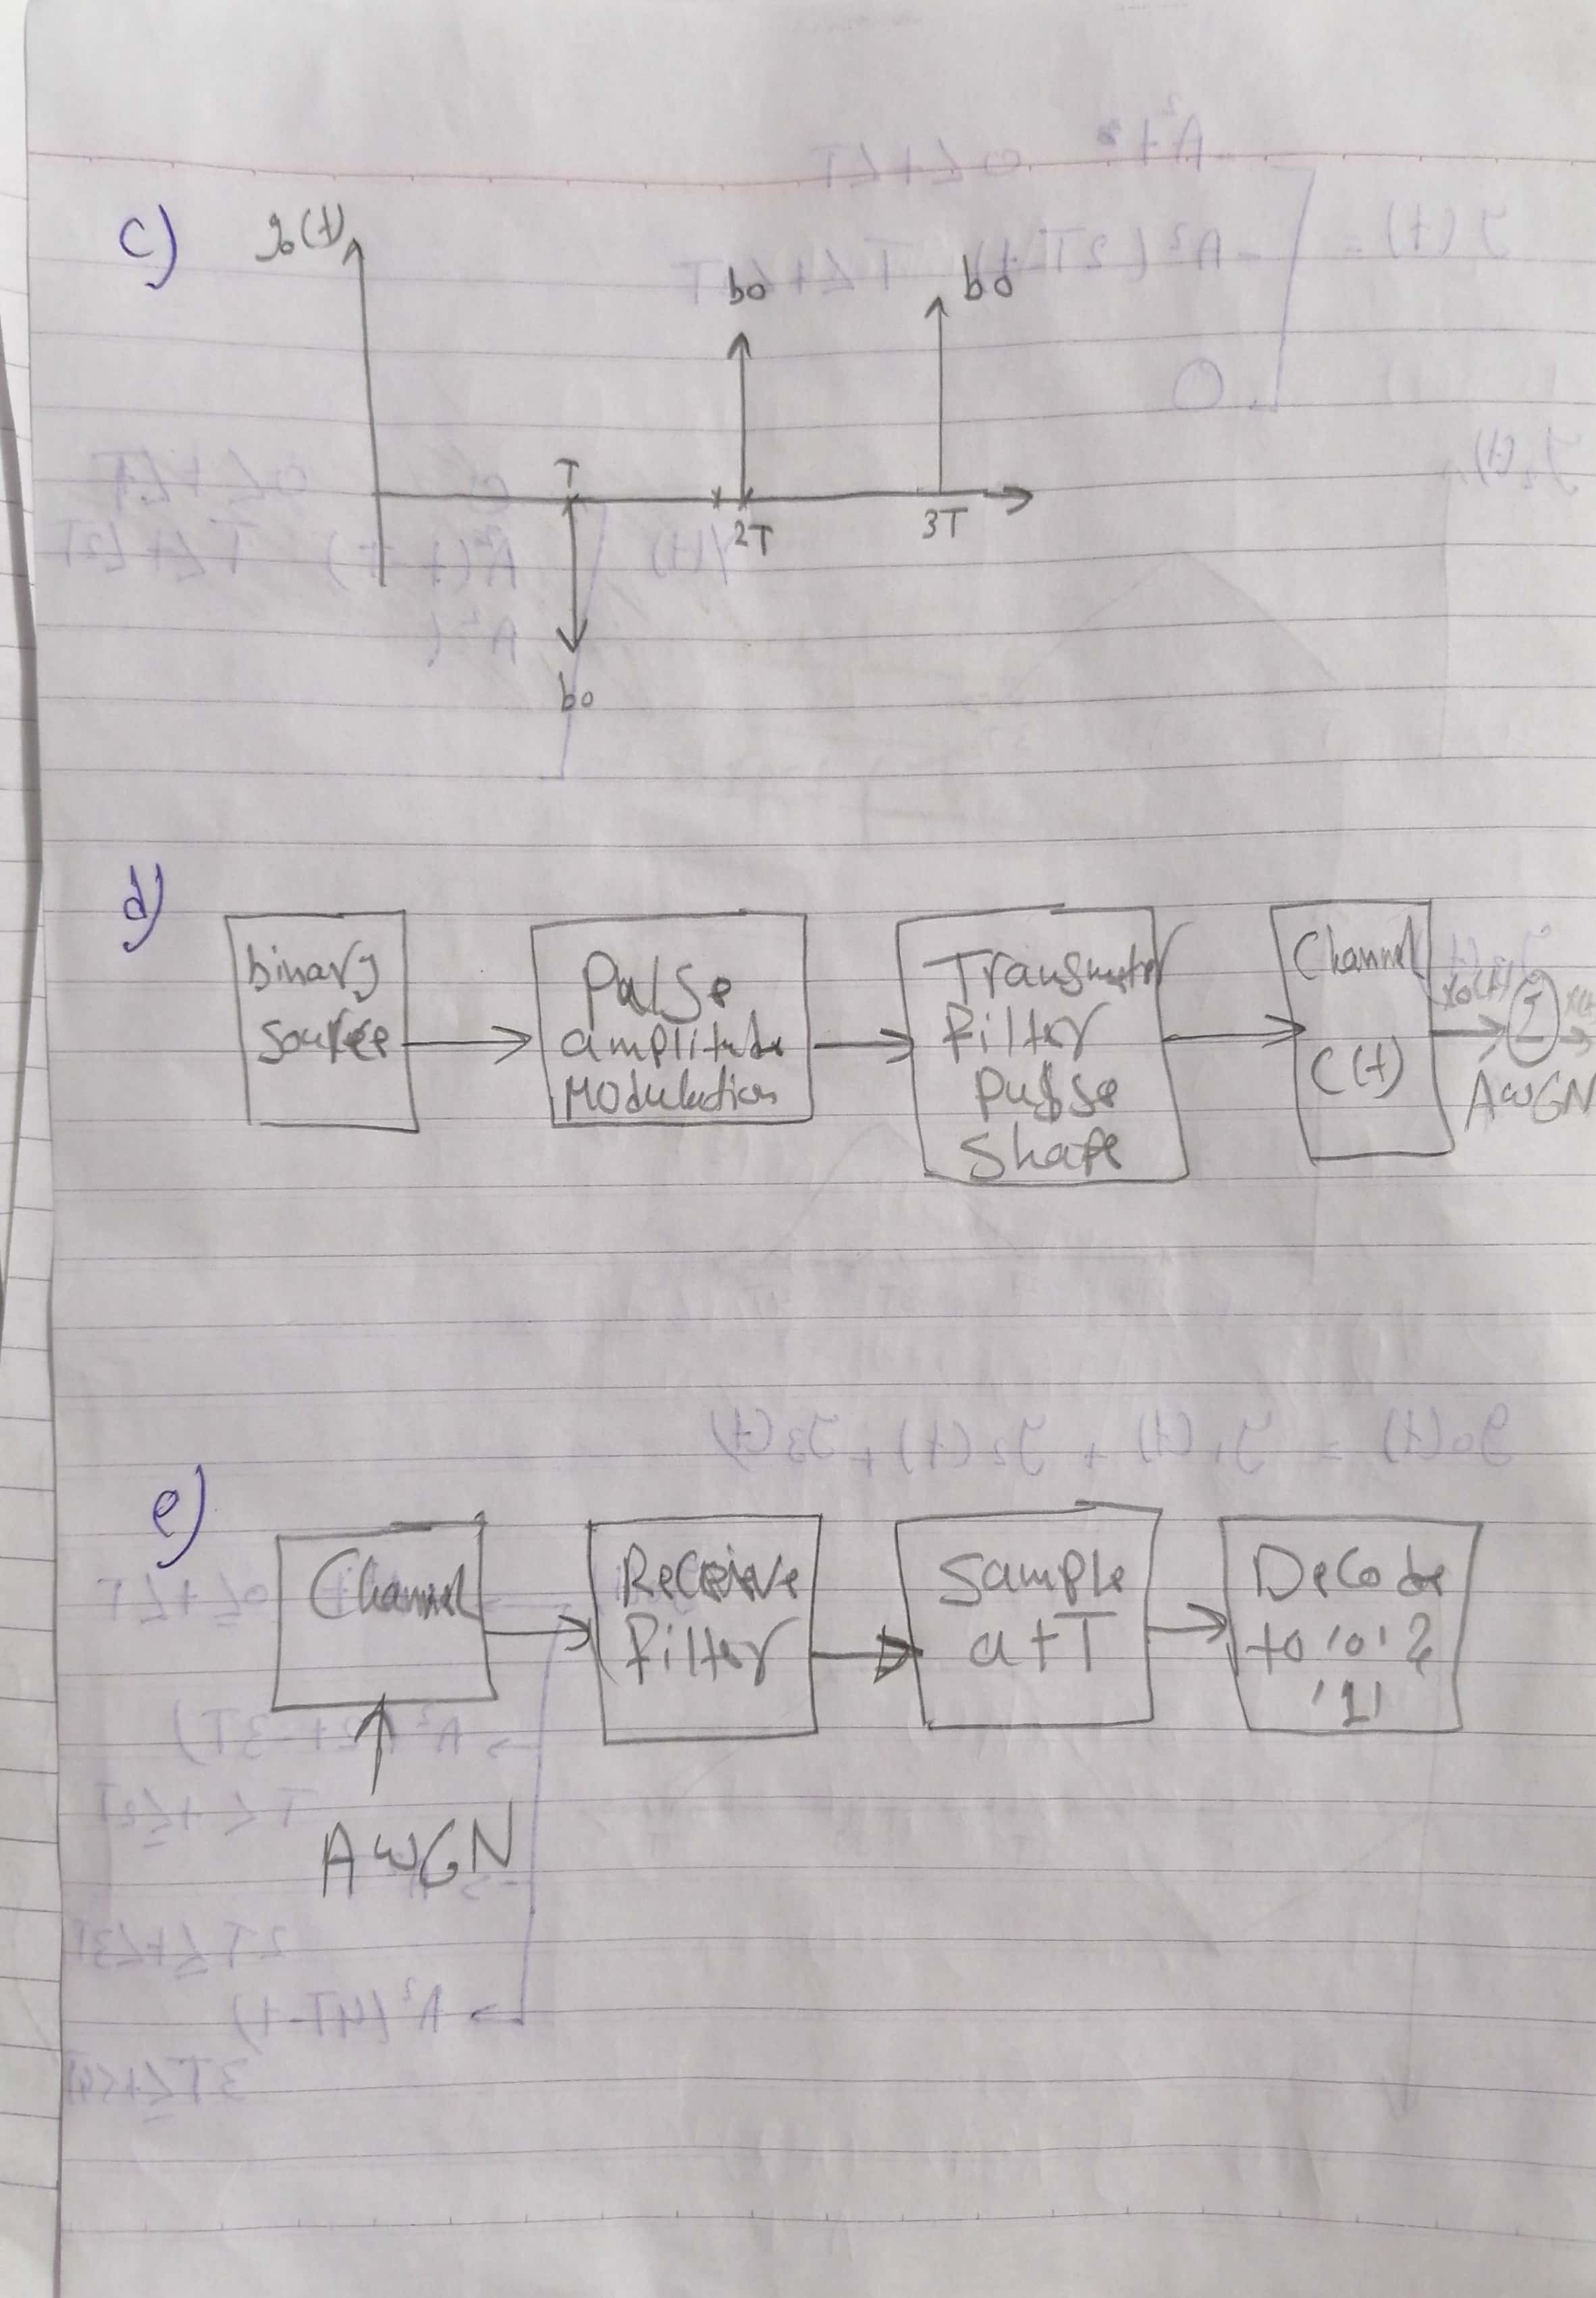 c)
y₀(t)
b₀
b₀
T
2T
3T
b₀
d)
binary
source
Pulse
amplitude
Modulation
Transmitter
Filter
Pulse
Shape
Channel
C(t)
x₀(t)
Σ
AWGN
e)
Channel
AWGN
Receive
Filter
Sample
at T
Decode
to '0' &
'1'